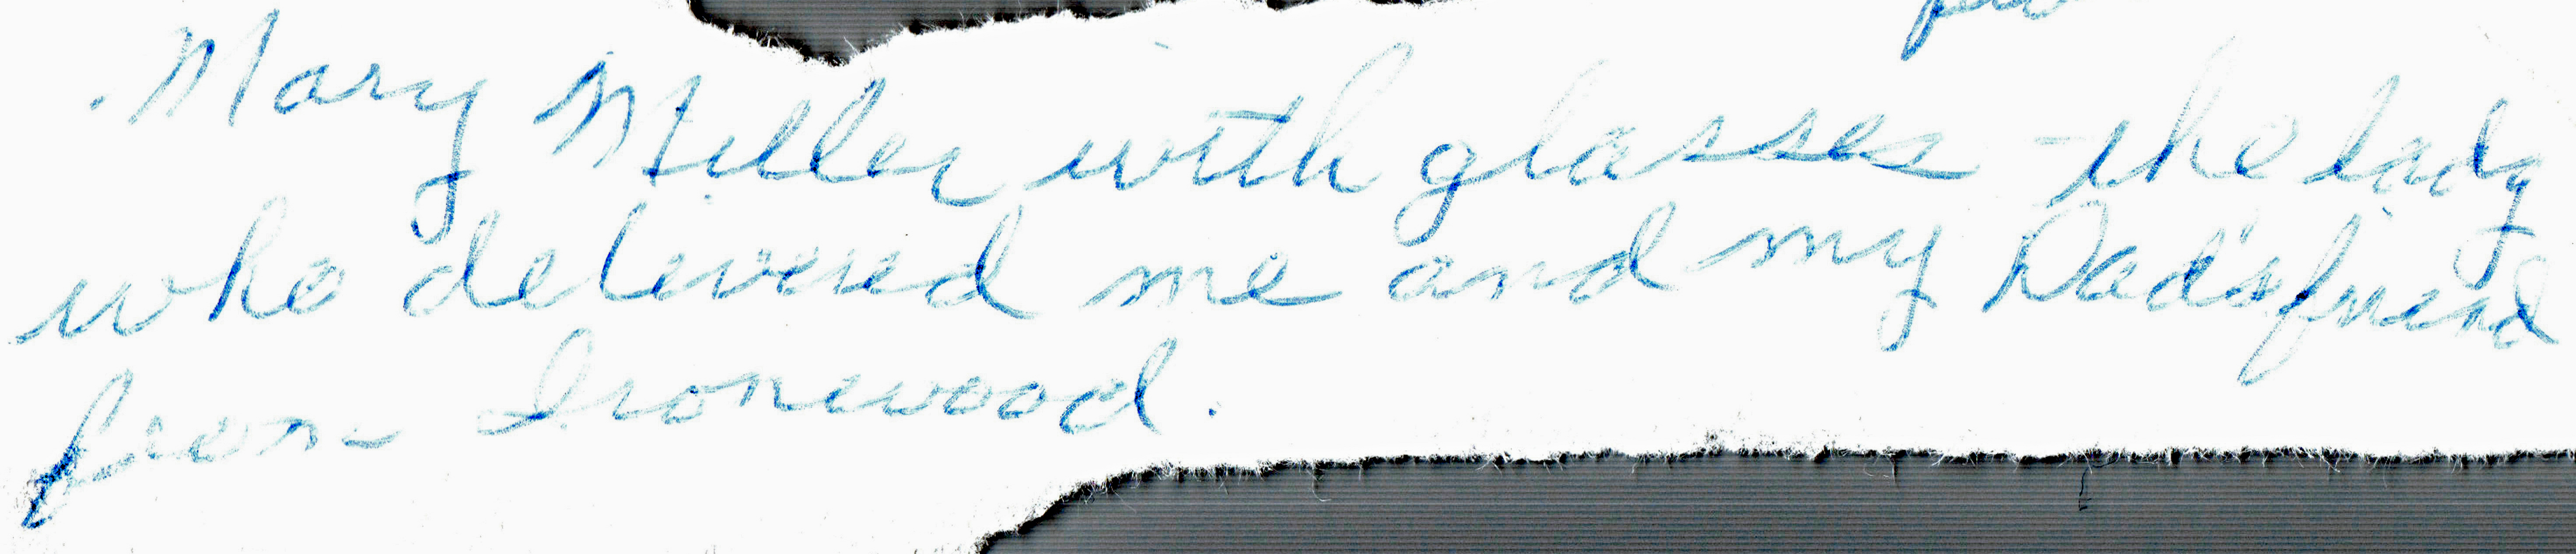 Mary Miller with glasses - the lady
who delivered me and my Dad's friend
from Ironwood.